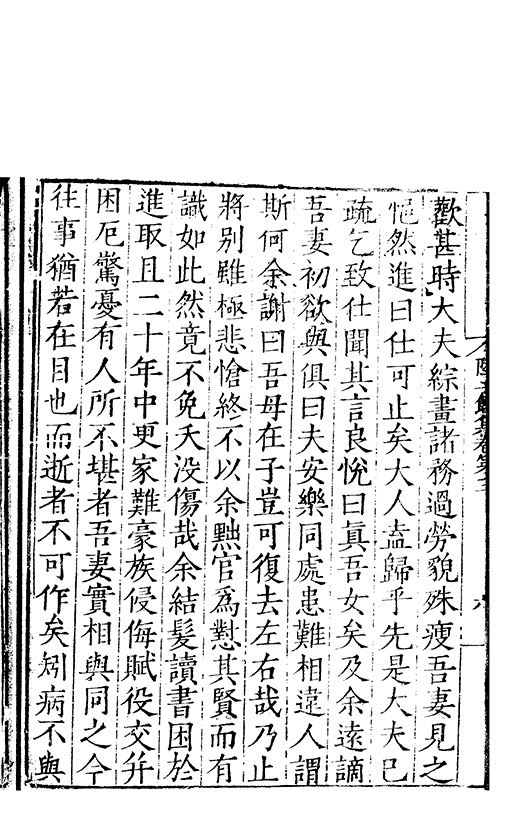 歡甚時大夫綜畫諸務過勞貌殊瘦吾妻見之
悒然進曰仕可止矣大人盍歸乎先是大夫已
疏乞致仕聞其言良悅曰眞吾女矣及余遠謫
吾妻初欲與俱曰夫安樂同處患難相遠人謂
斯何余謝曰吾母在子豈可復去左右哉乃止
將别雖極悲愴終不以余黜官爲懟其賢而有
識如此然竟不免夭没傷哉余結髮讀書困於
進取且二十年中更家難豪族侵侮賦役交幷
困厄驚憂有人所不堪者吾妻實相與同之今
往事猶若在目也而逝者不可作矣矧病不與